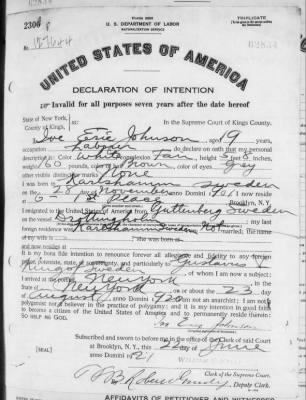 TRIPLICATE
U. S. DEPARTMENT OF LABOR
NATURALIZATION SERVICE
UNITED STATES OF AMERICA
DECLARATION OF INTENTION
Invalid for all purposes seven years after the date hereof
State of New York,
County of Kings,
In the Supreme Court of Kings County.
Eric Johnson, aged 19 years,
occupation Laborer, do declare on oath that my personal
description is: Color White, complexion Fair, height 5 feet 6 inches,
weight 160 pounds, color of hair Brown, color of eyes Grey
other visible distinctive marks None
I was born in Karlshamn Sweden
on the 28 day of November, anno Domini 1901; I now reside
at Place Brooklyn, N. Y.
I emigrated to the United States of America from Guttenberg Sweden
on the vessel Drottningholm; my last
foreign residence was Karlshamn Sweden Not married; the name
of my wife is; she was born at
and now resides at
It is my bona fide intention to renounce forever all allegiance and fidelity to any foreign
prince, potentate, state, or sovereignty, and particularly to Gustavus V
King of Sweden, of whom I am now a subject;
I arrived at the port of New York, in the
State of New York, on or about the 23 day
of August, anno Domini 1920; I am not an anarchist; I am not a
polygamist nor a believer in the practice of polygamy; and it is my intention in good faith
to become a citizen of the United States of America and to permanently reside therein:
SO HELP ME GOD.
Eric Johnson
Subscribed and sworn to before me in the office of the Clerk of said Court
at Brooklyn, N. Y., this 22 day of June
anno Domini 1921
[SEAL]
Clerk of the Supreme Court.
Deputy Clerk.
AFFIDAVITS OF PETITIONER AND WITNESSES